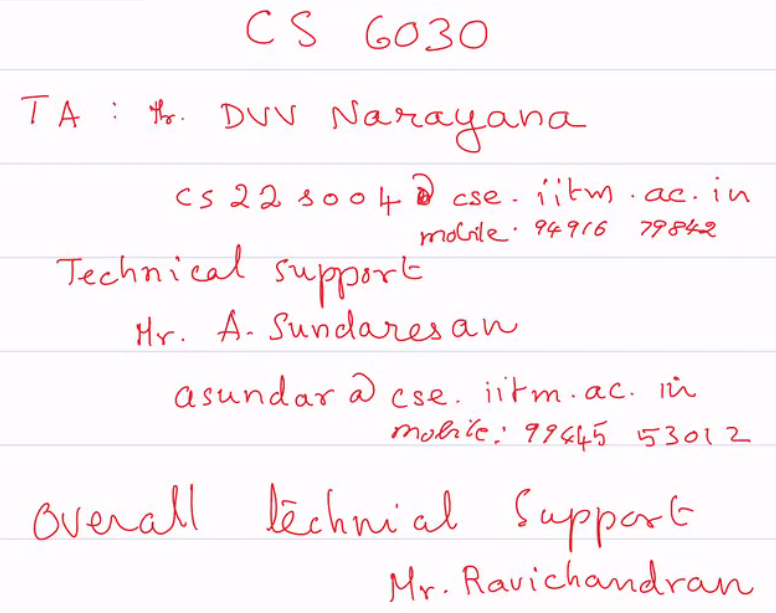 CS 6030
TA : Mr. DVV Narayana
cs22s004@cse.iitm.ac.in
mobile: 94916 79842
Technical support
Mr. A. Sundaresan
asundar@cse.iitm.ac.in
mobile: 99445 53012
Overall technial Support
Mr. Ravichandran